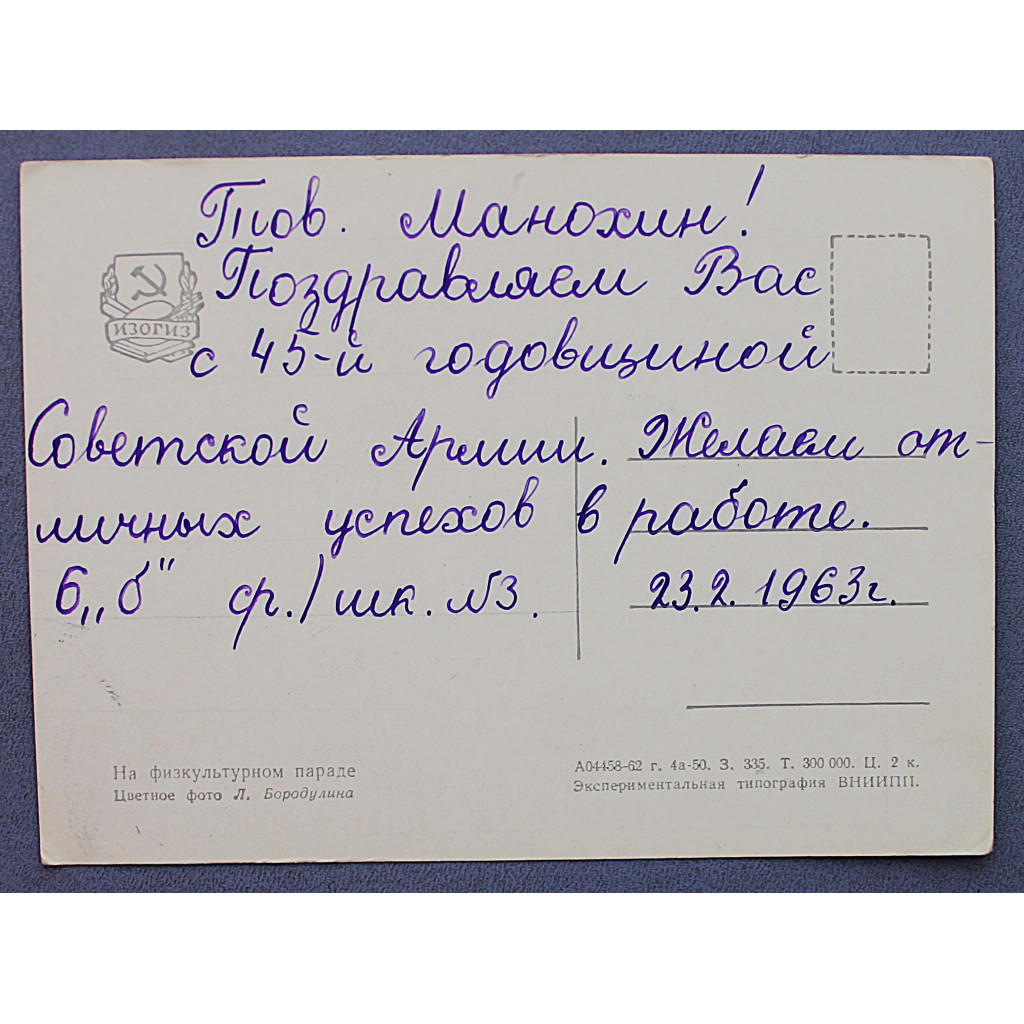 Тов. Манохин!
Поздравляем Вас
с 45-й годовщиной
Советской Армии. Желаем от-
личных успехов в работе.
6 „б" ср./шк. №3. 23.2.1963г.
ИЗОГИЗ
На физкультурном параде
Цветное фото Л. Бородулина
А04458-62 г. 4а-50. З. 335. Т. 300 000. Ц. 2 к.
Экспериментальная типография ВНИИПП.